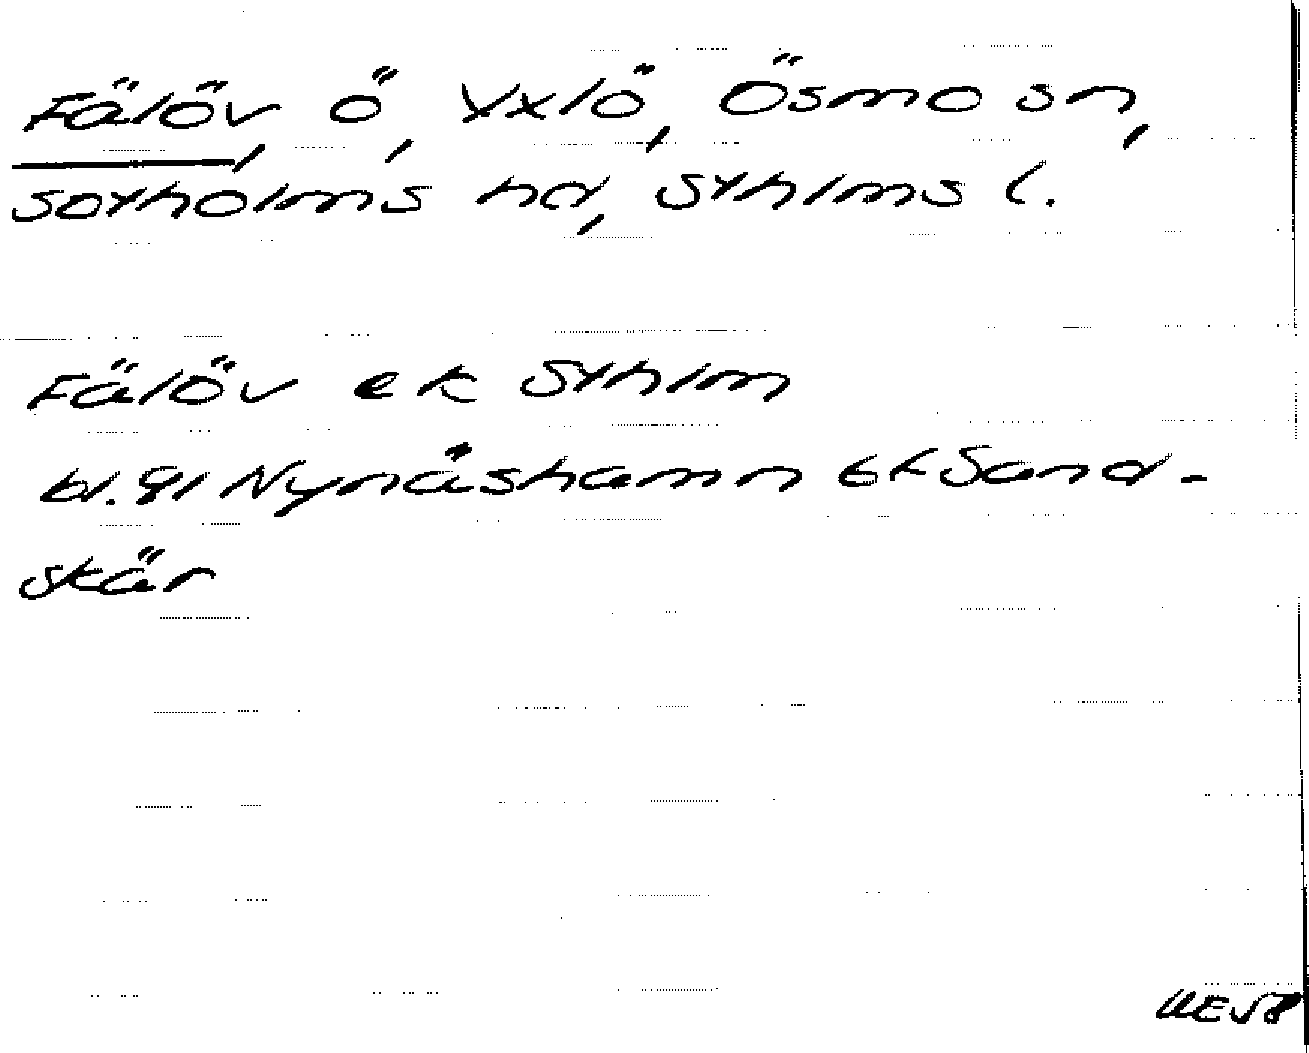 Fälöv, ö, Yxlö, Ösmo sn,
sotholms hd, Sthlms l.
Fälöv ek Sthlm
bl. 91 Nynäshamn Sand-
skär